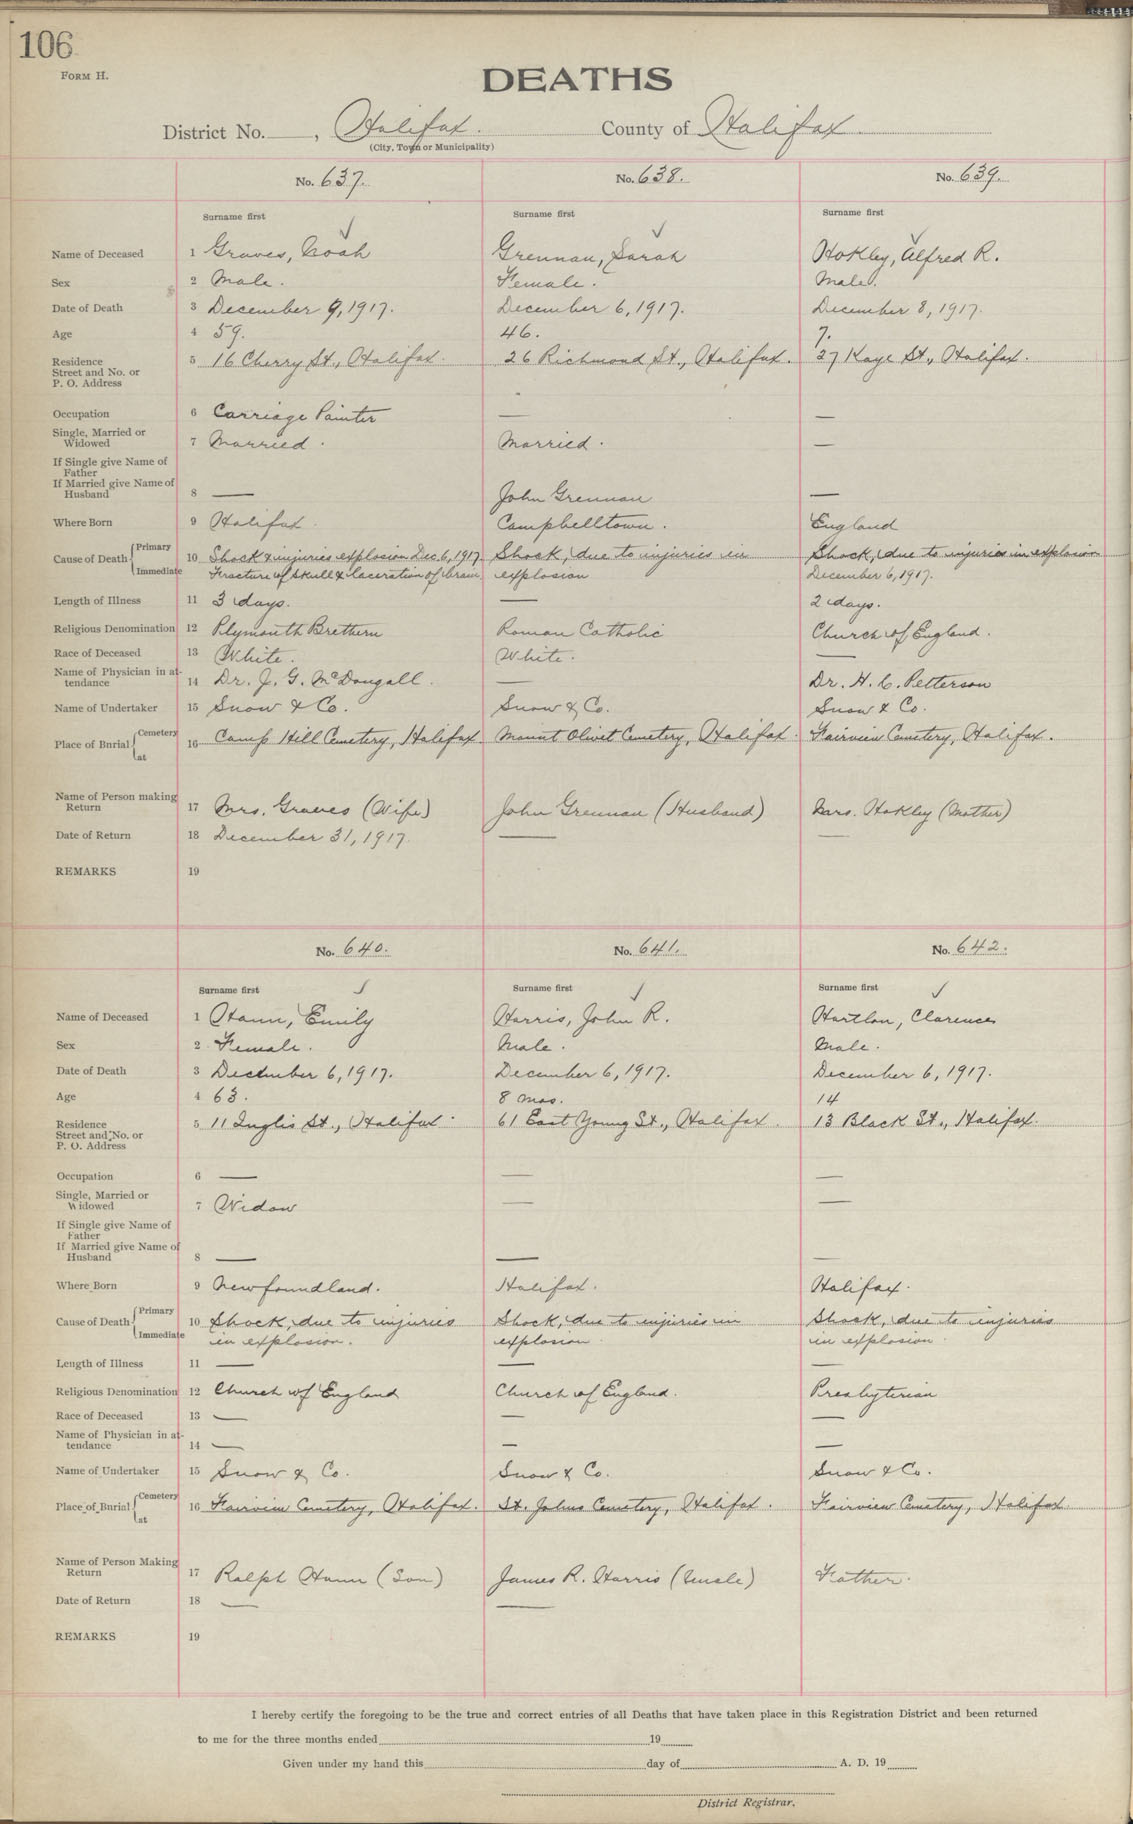 106
FORM H.
DEATHS
District No. , Halifax. County of Halifax
(City, Town or Municipality)
No. 637. No. 638. No. 639.
Surname first Surname first Surname first
Name of Deceased 1 Graves, Noah Grennan, Sarah Hokley, Alfred R.
Sex 2 Male. Female. Male.
Date of Death 3 December 9, 1917. December 6, 1917. December 8, 1917.
Age 4 59. 46. 7.
Residence 5 16 Cherry St., Halifax. 26 Richmond St., Halifax. 27 Kaye St., Halifax.
Street and No. or
P. O. Address
Occupation 6 Carriage Painter — —
Single, Married or
Widowed 7 Married. Married. —
If Single give Name of
Father
If Married give Name of
Husband 8 — John Grennan —
Where Born 9 Halifax. Campbelltown. England
Cause of Death { Primary 10 Shock & injuries explosion Dec. 6, 1917. Shock, due to injuries in Shock, due to injuries in explosion
Immediate Fracture of skull & laceration of brain explosion December 6, 1917.
Length of Illness 11 3 days. — 2 days.
Religious Denomination 12 Plymouth Brethern Roman Catholic Church of England.
Race of Deceased 13 White. White. —
Name of Physician in at-
tendance 14 Dr. J. G. McDougall. — Dr. H. C. Petterson
Name of Undertaker 15 Snow & Co. Snow & Co. Snow & Co.
Place of Burial { Cemetery 16 Camp Hill Cemetery, Halifax Mount Olivet Cemetery, Halifax. Fairview Cemetery, Halifax.
at
Name of Person making
Return 17 Mrs. Graves (Wife) John Grennan (Husband) Mrs. Hokley (Mother)
Date of Return 18 December 31, 1917. — —
REMARKS 19
No. 640. No. 641. No. 642.
Surname first Surname first Surname first
Name of Deceased 1 Hann, Emily Harris, John R. Hartlan, Clarence
Sex 2 Female. Male. Male.
Date of Death 3 December 6, 1917. December 6, 1917. December 6, 1917.
Age 4 63. 8 mos. 14
Residence 5 11 Inglis St., Halifax. 61 East Young St., Halifax. 13 Black St., Halifax.
Street and No. or
P. O. Address
Occupation 6 — — —
Single, Married or
Widowed 7 Widow — —
If Single give Name of
Father
If Married give Name of
Husband 8 — — —
Where Born 9 Newfoundland. Halifax. Halifax.
Cause of Death { Primary 10 Shock, due to injuries Shock, due to injuries in Shock, due to injuries
Immediate in explosion. explosion in explosion
Length of Illness 11 — — —
Religious Denomination 12 Church of England Church of England. Presbyterian
Race of Deceased 13 — — —
Name of Physician in at-
tendance 14 — — —
Name of Undertaker 15 Snow & Co. Snow & Co. Snow & Co.
Place of Burial { Cemetery 16 Fairview Cemetery, Halifax. St. Johns Cemetery, Halifax. Fairview Cemetery, Halifax
at
Name of Person Making
Return 17 Ralph Hann (Son) James R. Harris (Uncle) Father.
Date of Return 18 — —
REMARKS 19
I hereby certify the foregoing to be the true and correct entries of all Deaths that have taken place in this Registration District and been returned
to me for the three months ended 19
Given under my hand this day of A. D. 19
District Registrar.